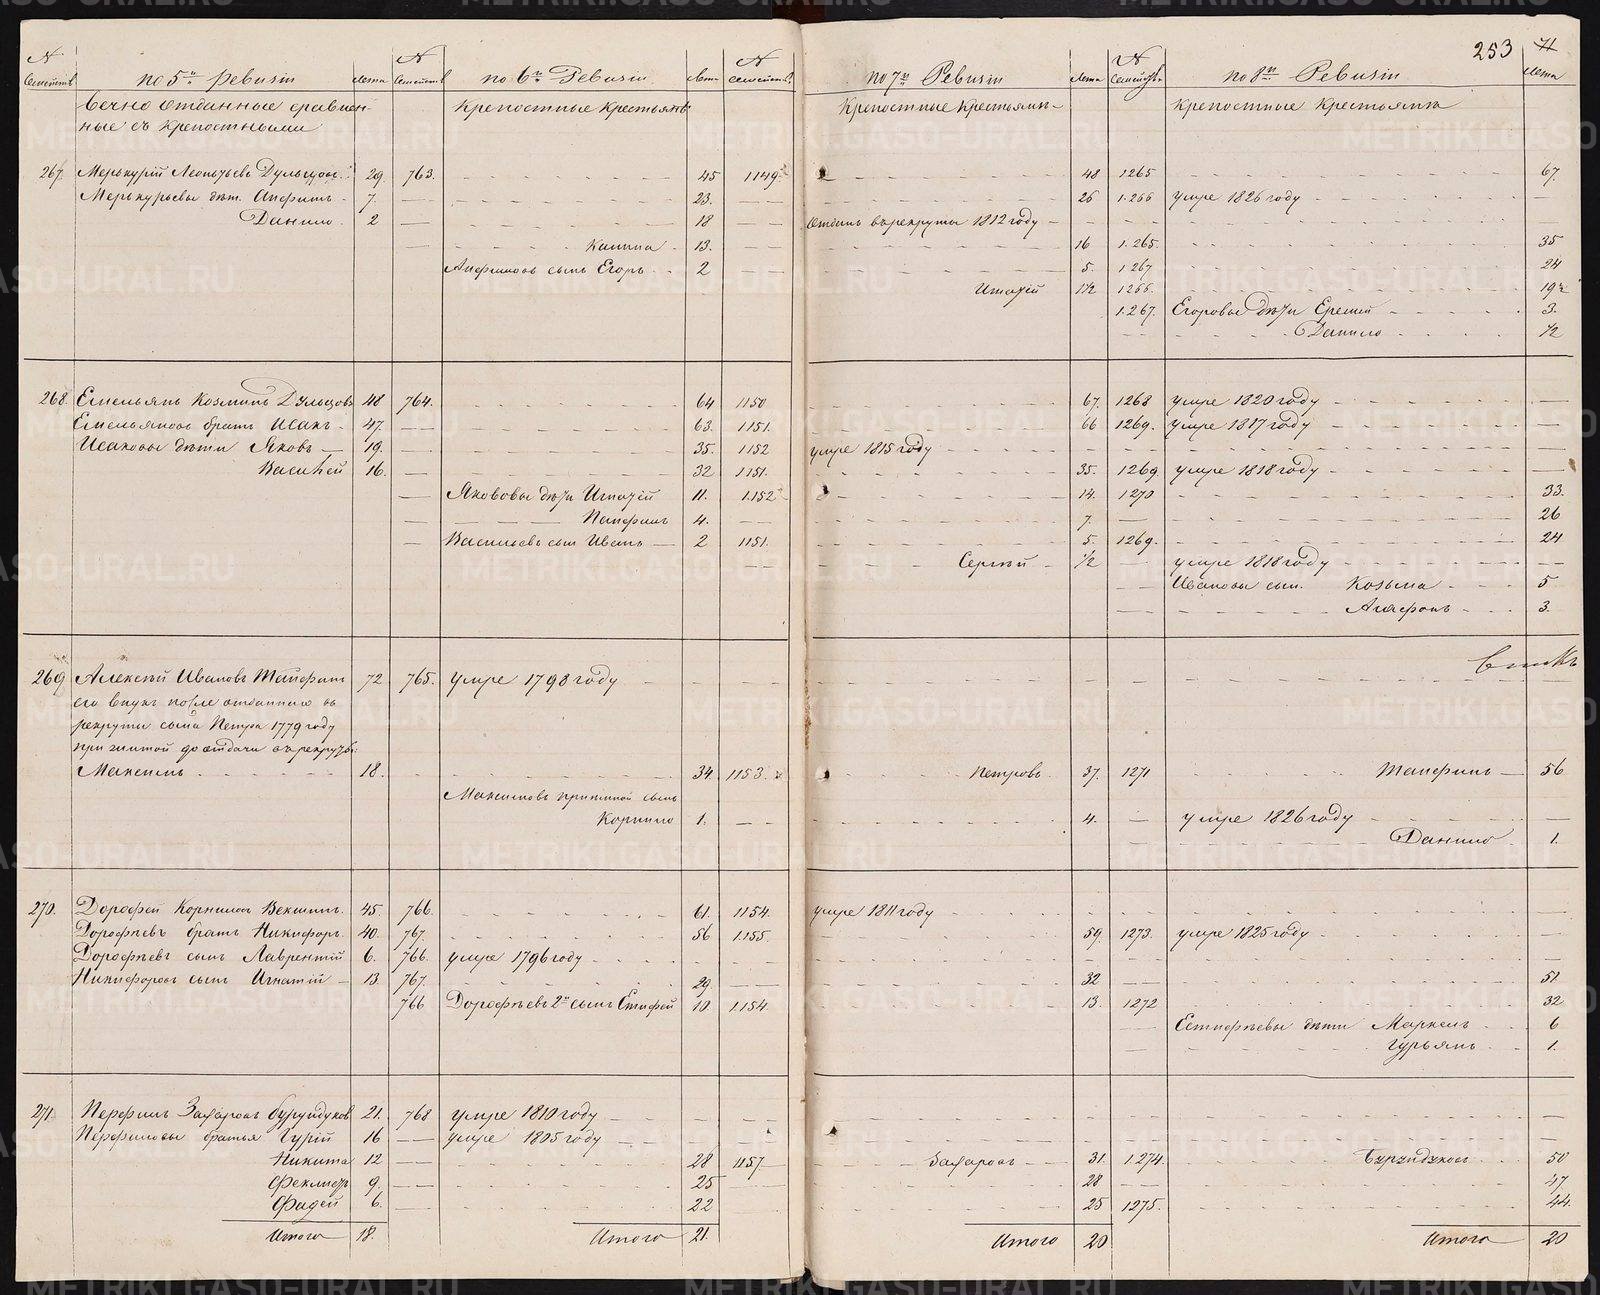 253 71
N Семейств по 5й Ревизии лета N Семейств по 6й Ревизии лета N семейств по 7й Ревизии лета N семействъ по 8й Ревизии лета
Вечно отданные сравнен- Крепостные Крестьянъ Крепостные Крестьянъ Крепостные Крестьянъ
ные съ Крепостными
267. Меркурий Леонтьевъ Дульцовъ. 29. 763. 45 1149. 48 1265 67.
Меркурьевы дѣт. Анфимъ 7. 23. 26 1266 умре 1826 году
Данило 2 18 Отданъ въ рекруты 1812 году
Калина 13. 16 1265. 35
Анфимовъ сынъ Егоръ 2 5. 1267 24
Игнатій 1½ 1266. 19½
1267. Егоровы дѣти Еремей 3.
Данило ½
268. Емельянъ Козминъ Дульцовъ 48 764. 64 1150 67. 1268 умре 1820 году
Емельяновъ братъ Исакъ 47. 63. 1151. 66 1269. умре 1817 году
Исаковы дѣти Яковъ 19. 35. 1152 умре 1815 году
Василей 16. 32 1151. 35. 1269 умре 1818 году
Якововы дѣти Игнатій 11. 1152 14. 1270 33.
Панфилъ 4. 7. 26
Васильевъ сынъ Иванъ 2 1151. 5. 1269. 24
Сергѣй ½ умре 1818 году
Ивановы сын. Козьма 5
Агафонъ 3.
269 Алексѣй Ивановъ Панфилъ 72 765. умре 1798 году
его внукъ после отданнаго въ
рекруты сына Петра 1779 году
прижитой до отдачи въ рекруты:
Максимъ 18. 34. 1153. Петровъ 37. 1271 56
Максимовъ прижитой сынъ
Корнило 1. 4. умре 1826 году
Данило 1.
270. Дорофей Корниловъ Векшинъ. 45. 766. 61. 1154. умре 1811 году
Дорофѣевъ братъ Никифоръ. 40. 767. 56 1155. 59. 1273. умре 1825 году
Дорофѣевъ сынъ Лаврентій 6. 766. умре 1796 году
Никифоровъ сынъ Игнатій 13 767. 29. 32 51.
766 Дорофѣевъ 2й сынъ Естифей 10. 1154. 13. 1272 32
Естифѣевы дѣти Маркелъ 6
Гурьянъ 1.
271. Перфилъ Захаровъ Бурундуковъ 21. 768 умре 1810 году
Перфиловы братья Гурій 16 умре 1805 году
Никита 12 28 1157 Захаровъ 31. 1274. Бурундуковъ 50
Феклистъ 9. 25 28 47.
Фадей 6. 22 25 1275. 44.
Итого 18. Итого 21. Итого 20 Итого 20
METRIKI.GASO-URAL.RU